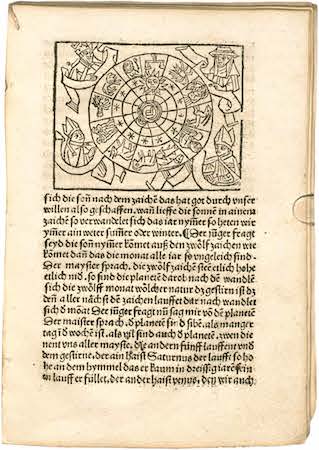 sich die soñ nach dem zaichẽ das hat got durch vnser
willen also geschaffen. wañ lieffe die sonne in ainem
zaichẽ so verwandlet sich das iar nym̃er so heten wir
ym̃er ain weter sum̃er oder winter. Der iũger fragt
seyd die son nym̃er kõmet auß den zwoͤlf zaichen wie
kõmet dañ das die monat alle iar so vngleich sind.
Der mayster sprach. die zwoͤlf zaichẽ steẽ etlich hohe
etlich nõ. so sind die planetẽ darob nach dẽ wandlẽ
sich die zwoͤlff monat woͤlcher natur dz gestirn ist dz
deñ aller naͤchst dẽ zaichen lauffet dar nach wandlet
sich d̃ mõat. Der iũger fragt nũ sag mir võ dẽ planetẽ
Der maister sprach. d̃ planetẽ sid̃ sibẽ. als manger
tag ĩ d̃ wochẽ ist. als vil sind auch d̃ planetẽ. zwen die
nent vns aller mayste. die andern fünff lauffent vnd̃
dem gestirne. der ain haist Saturnus der laufft so ho
he an dem hymmel das er kaum in dreissig iarẽ sein
en lauff erfüllet. der ander haist venus. den wir auch